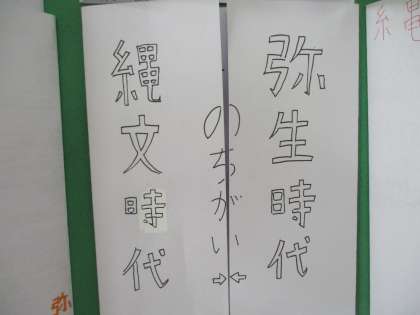 弥生時代
のちがい
→←
縄文時代
縄
弥